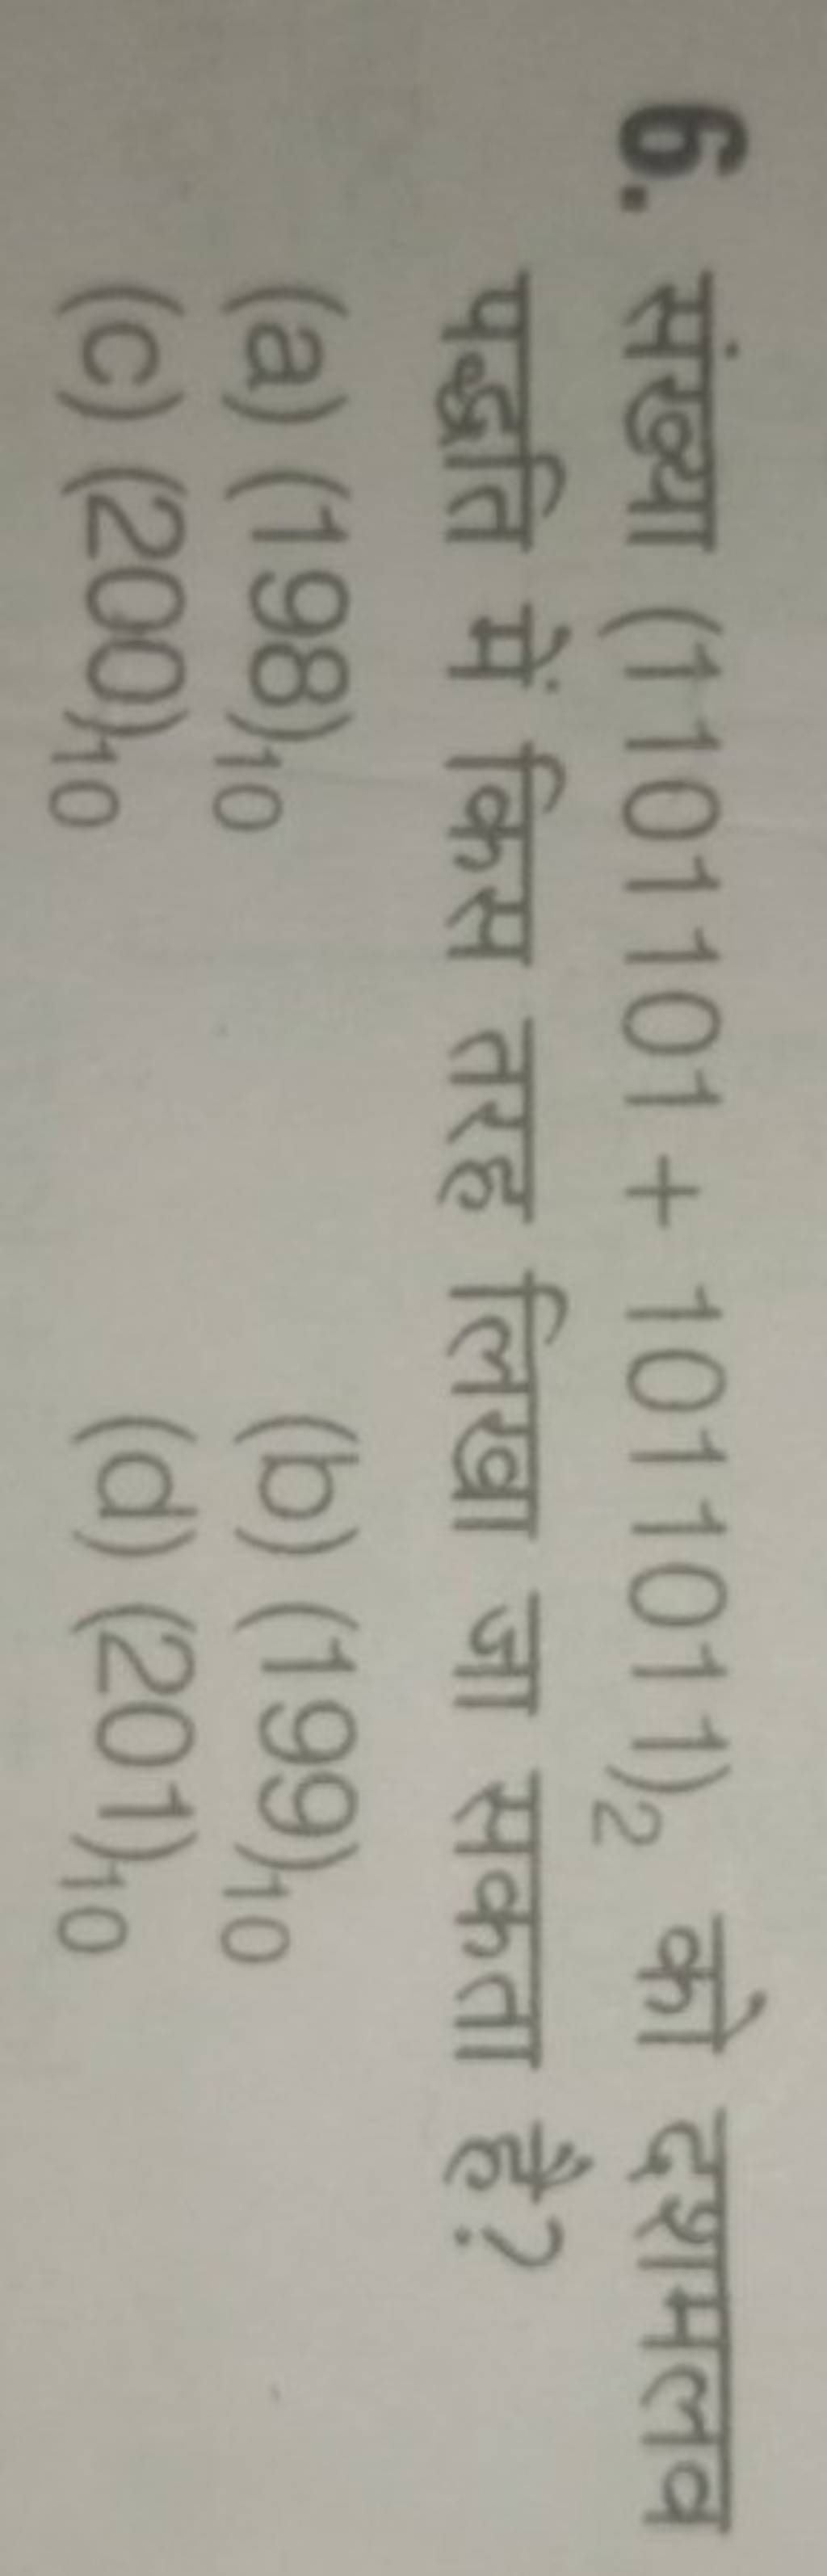 6. संख्या (1101101 + 1011011)₂ को दशमलव
पद्धति में किस तरह लिखा जा सकता है?
(a) (198)₁₀ (b) (199)₁₀
(c) (200)₁₀ (d) (201)₁₀